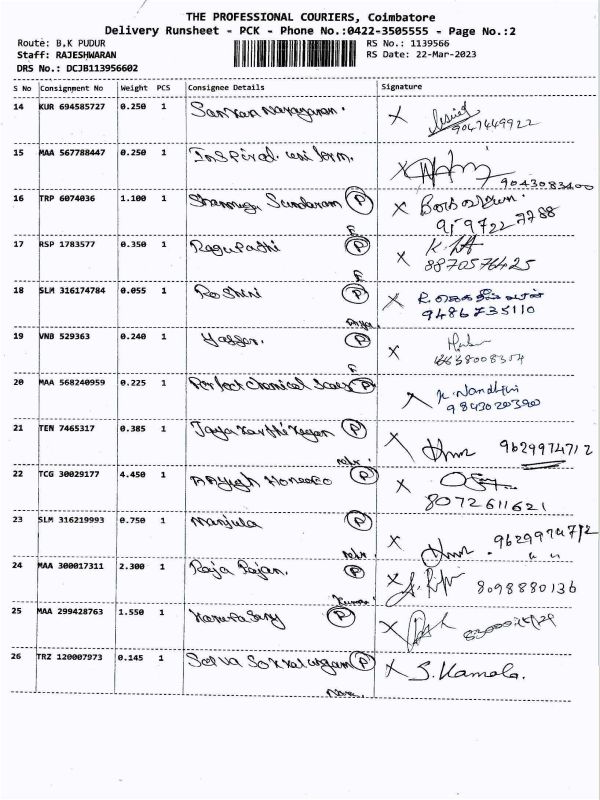 THE PROFESSIONAL COURIERS, Coimbatore
Delivery Runsheet - PCK - Phone No.:0422-3505555 - Page No.:2
Route: B.K PUDUR
Staff: RAJESHWARAN
DRS No.: DCJB113956602
RS No.: 1139566
RS Date: 22-Mar-2023
S No Consignment No Weight PCS Consignee Details Signature
14 KUR 694585727 0.250 1 Sankar Narayanan. X
9047449922
15 MAA 567788447 0.250 1 Inspiral. uniform. X
9043083400
16 TRP 6074036 1.100 1 Shanmuga Sundaram P X
9597227788
17 RSP 1783577 0.350 1 Ragupathi P X
8870576425
18 SLM 316174784 0.055 1 Roshini P X
9486735110
19 VNB 529363 0.240 1 Yasser. P X
20 MAA 568240959 0.225 1 Perfect Chemical P K. Nandhini
9843020390
21 TEN 7465317 0.385 1 Jaya Karthikeyan P
9629974712
22 TCG 30029177 4.450 1 P X
8072611621
23 SLM 316219993 0.750 1 Manjula P X
9629974712
24 MAA 300017311 2.300 1 Raja Rajan. P X
8098880136
25 MAA 299428763 1.550 1 Karupasamy P X
26 TRZ 120007973 0.145 1 Selva P X S. Kamala.